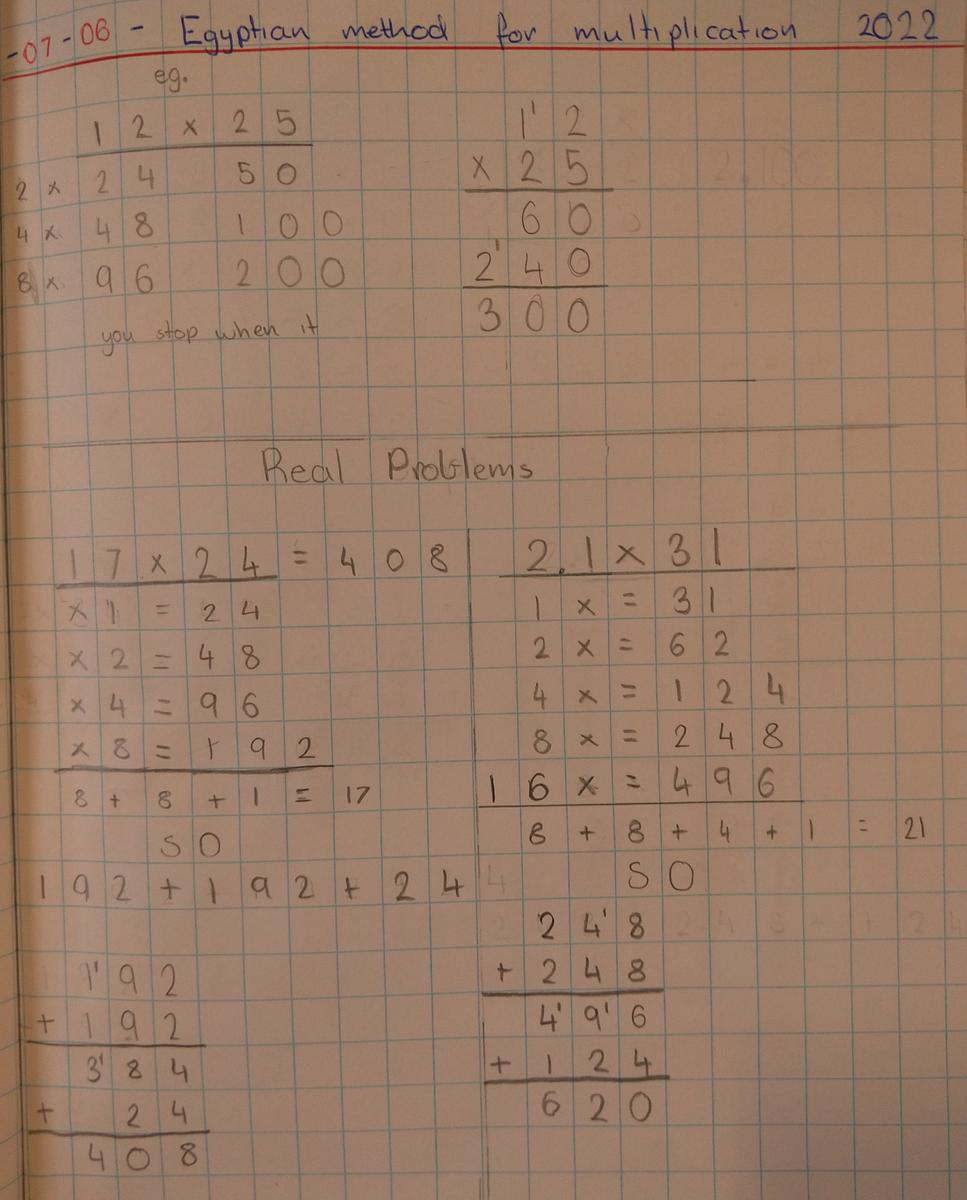 -07-06 - Egyptian method for multiplication 2022
eg.
12 x 25
2 x 24 50
4 x 48 100
8 x 96 200
you stop when it
12
x 25
60
240
300
Real Problems
17 x 24 = 408
x 1 = 24
x 2 = 48
x 4 = 96
x 8 = 192
8 + 8 + 1 = 17
SO
192 + 192 + 24
192
+ 192
384
+ 24
408
2.1 x 31
1 x = 31
2 x = 62
4 x = 124
8 x = 248
16 x = 496
8 + 8 + 4 + 1 = 21
SO
248
+ 248
496
+ 124
620